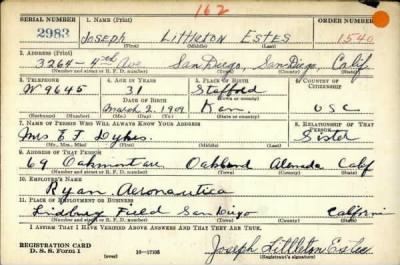 162
SERIAL NUMBER 1. NAME (Print) ORDER NUMBER
2983 JOSEPH LITTLETON ESTES 1540
(First) (Middle) (Last)
2. ADDRESS (Print)
3264-4th Ave San Diego, San Diego, Calif
(Number and street or R. F. D. number) (Town) (County) (State)
3. TELEPHONE 4. AGE IN YEARS 5. PLACE OF BIRTH 6. COUNTRY OF CITIZENSHIP
W 9645 31 Stafford
DATE OF BIRTH (Town or county)
March 2, 1909 Kan. USC
(Mo.) (Day) (Yr.) (State or country)
7. NAME OF PERSON WHO WILL ALWAYS KNOW YOUR ADDRESS 8. RELATIONSHIP OF THAT PERSON
Mrs E. F. Dykes. Sister
(Mr., Mrs., Miss) (First) (Middle) (Last)
9. ADDRESS OF THAT PERSON
69 Oakmont ave Oakland Alameda Calif
(Number and street or R. F. D. number) (Town) (County) (State)
10. EMPLOYER'S NAME
Ryan Aeronautica
11. PLACE OF EMPLOYMENT OR BUSINESS
Lindburg Field San Diego California
(Number and street or R. F. D. number) (Town) (County) (State)
I AFFIRM THAT I HAVE VERIFIED ABOVE ANSWERS AND THAT THEY ARE TRUE.
REGISTRATION CARD
D. S. S. Form 1 (over) 16-17105 Joseph Littleton Estes
(Registrant's signature)